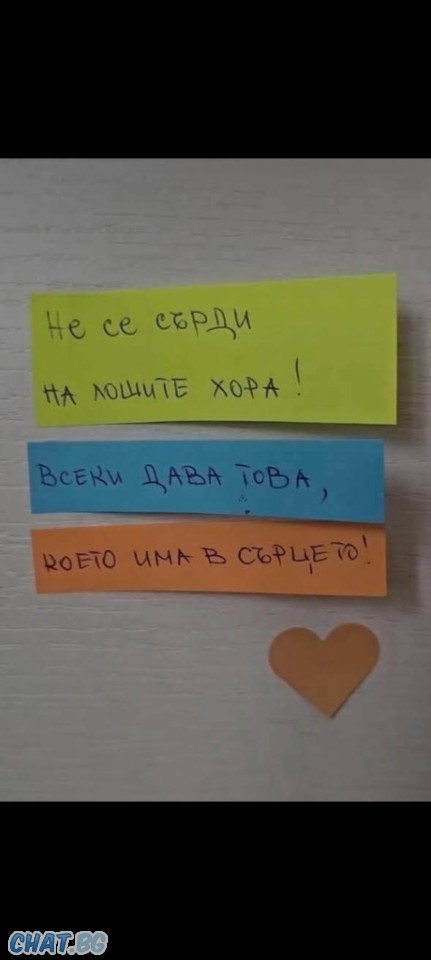 Не се сърди
на лошите хора!
Всеки дава това,
което има в сърцето!
CHAT.BG